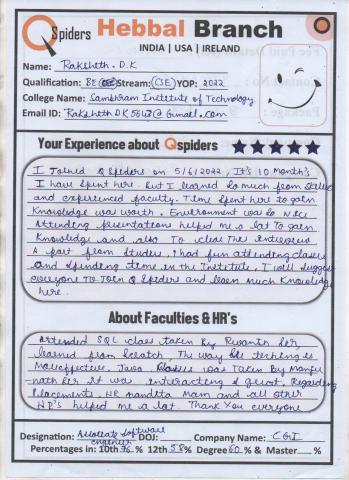 Q Spiders Hebbal Branch
INDIA | USA | IRELAND
Name: Raksheth. D.K
Qualification: BE Stream: (CSE) YOP: 2022
College Name: Sambhram Institute of Technology
Email ID: RakshethDK5043@Gmail.com
Your Experience about Qspiders
I Joined Q Spiders on 5/6/2022, It's 10 Month's
I have Spent here. But I learned so much from Skilled
and experienced faculty. Time Spent here to gain
Knowledge was worth. Environment was so Nice
Attending presentations helped me a lot to gain
Knowledge and also To clear The interviews
A part from studies, I had fun attending classes
and spending time in the Institute. I will suggest
everyone To Join Q Spiders and learn much Knowledge
here.
About Faculties & HR's
Attended SQL class taken By Revanth Ser,
learned from Scratch, The way his teching is
Classes was Taken By Manju
nath Ser it was interacting & great. Regarding
Placements, HR Nandita Mam and all other
HR's helped me a lot. Thank You everyone
Designation: Associate Software Engineer DOJ: Company Name: CGI
Percentages in: 10th 76 % 12th 58% Degree 60 % & Master %